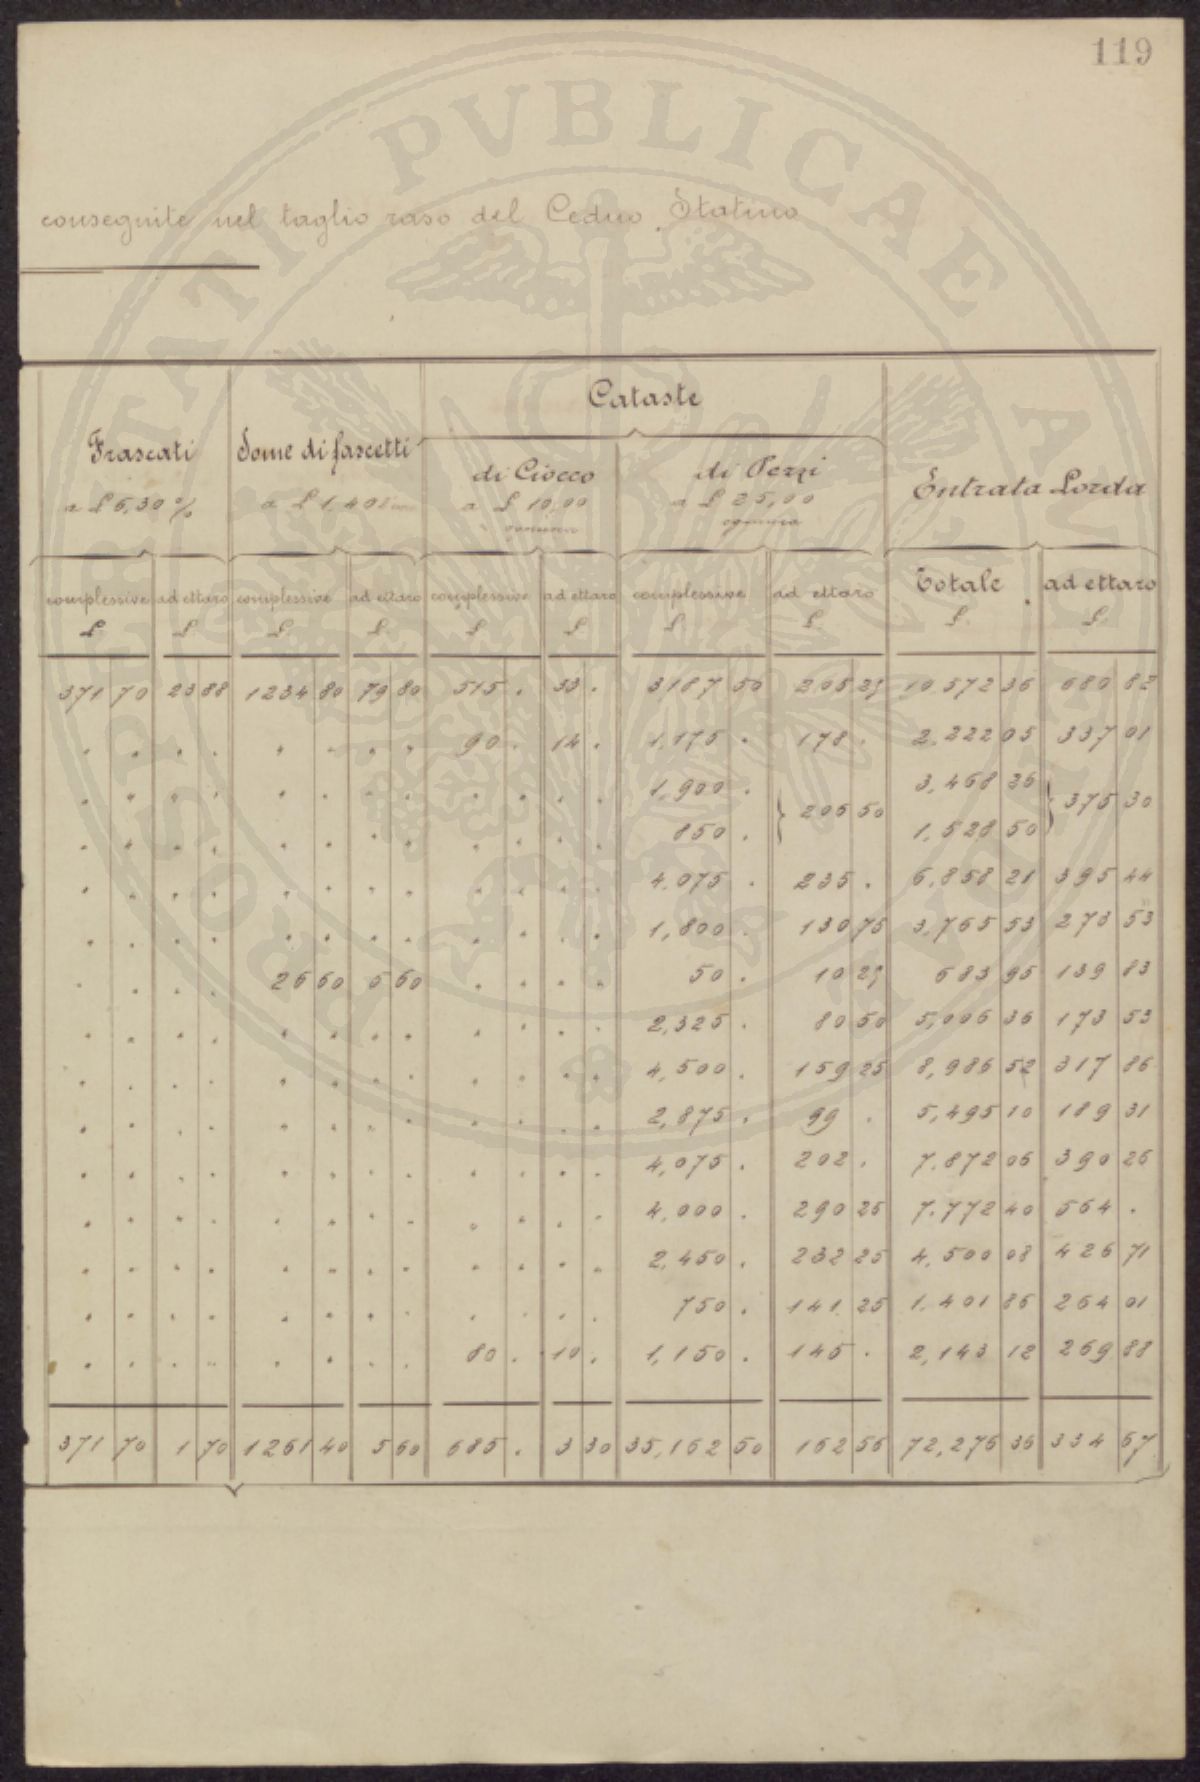 119
conseguite nel taglio raso del Ceduo Statino
Cataste
Frascati Some di fascetti di Ciocco di Pezzi Entrata Lorda
a £ 6,30 % a £ 1,40 a £ 10,00 a £ 25,00
ognuna
complessive ad ettaro complessive ad ettaro complessive ad ettaro complessive ad ettaro Totale ad ettaro
£ £ £ £ £ £ £ £ £ £
371 70 23 88 1234 80 79 80 515 . 33 . 3187 50 205 25 10.572 36 680 82
. . . . . . . . 90 . 14 . 1,175 . 178 . 2.222 05 337 01
. . . . . . . . . . . . 1,900 . 3,468 26
} 206 50 } 375 30
. . . . . . . . . . . . 850 . 1,528 50
. . . . . . . . . . . . 4,075 . 235 . 6.858 21 395 44
. . . . . . . . . . . . 1,800 . 130 75 3,765 53 273 53
. . . . 26 60 5 60 . . . . 50 . 10 25 683 95 139 83
. . . . . . . . . . . . 2,325 . 80 50 5,006 36 173 53
. . . . . . . . . . . . 4,500 . 159 25 8,986 52 317 86
. . . . . . . . . . . . 2,875 . 99 . 5,495 10 189 31
. . . . . . . . . . . . 4,075 . 202 . 7.872 06 390 26
. . . . . . . . . . . . 4,000 . 290 25 7.772 40 564 .
. . . . . . . . . . . . 2,450 . 232 25 4,500 08 426 71
. . . . . . . . . . . . 750 . 141 25 1.401 86 264 01
. . . . . . . . 80 . 10 . 1,150 . 145 . 2,143 12 269 88
371 70 1 70 1261 40 5 60 685 . 3 30 35,162 50 162 56 72,276 36 334 67